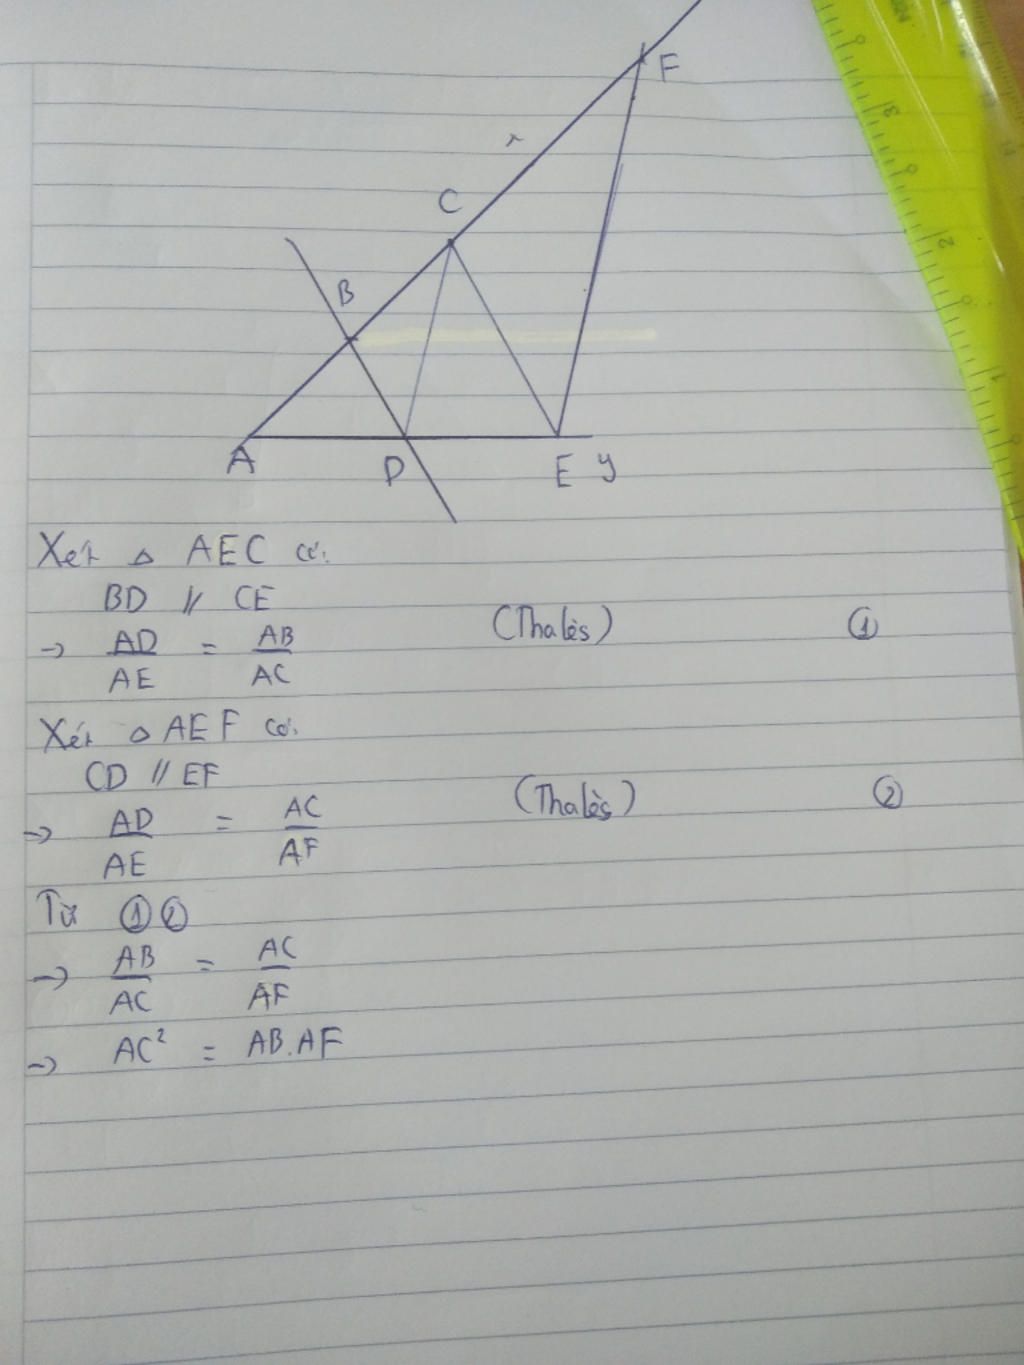 F
x
C
B
A D E y
Xét △ AEC có:
BD // CE
→ AD/AE = AB/AC (Thalès) ①
Xét △ AEF có:
CD // EF
→ AD/AE = AC/AF (Thalès) ②
Từ ①②
→ AB/AC = AC/AF
→ AC² = AB.AF
3
2
1